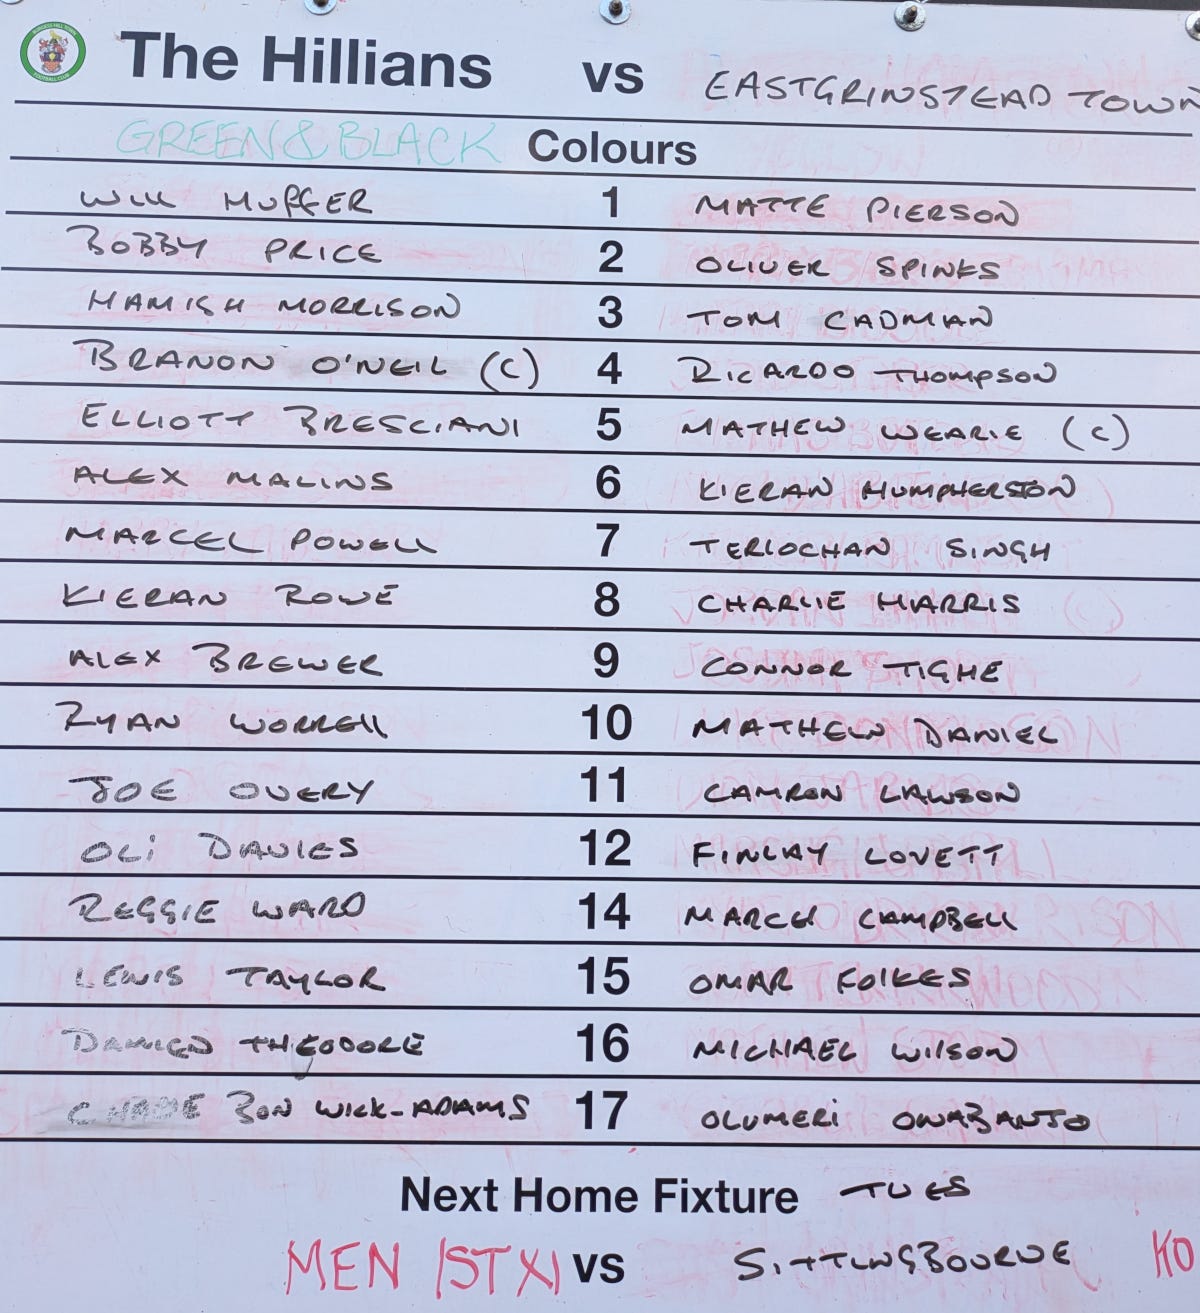 The Hillians vs EASTGRINSTEAD TOWN
GREEN & BLACK Colours
WILL HUFFER 1 MATTE PIERSON
BOBBY PRICE 2 OLIVER SPINKS
HAMISH MORRISON 3 TOM CADMAN
BRANON O'NEIL (C) 4 RICARDO THOMPSON
ELLIOTT BRESCIANI 5 MATHEW WEARIE (C)
ALEX MALINS 6 KIERAN HUMPHERSTON
MARCEL POWELL 7 TERLOCHAN SINGH
KIERAN ROWE 8 CHARLIE HARRIS
ALEX BREWER 9 CONNOR TIGHE
RYAN WORRELL 10 MATHEW DANIEL
JOE OVERY 11 CAMRON LAWSON
OLI DAVIES 12 FINLAY LOVETT
REGGIE WARD 14 MARCEL CAMPBELL
LEWIS TAYLOR 15 OMAR FOLKES
THEODORE 16 MICHAEL WILSON
BONWICK-ADAMS 17 OLUMERI OWABANJO
Next Home Fixture TUES
MEN 1ST XI vs SITTINGBOURNE KO